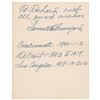 To Richard, with
all good wishes
Sam Crawford
Cincinnati - 1900-1-2
Detroit - 1903 to 1917
Los Angeles 1918-19-20-21